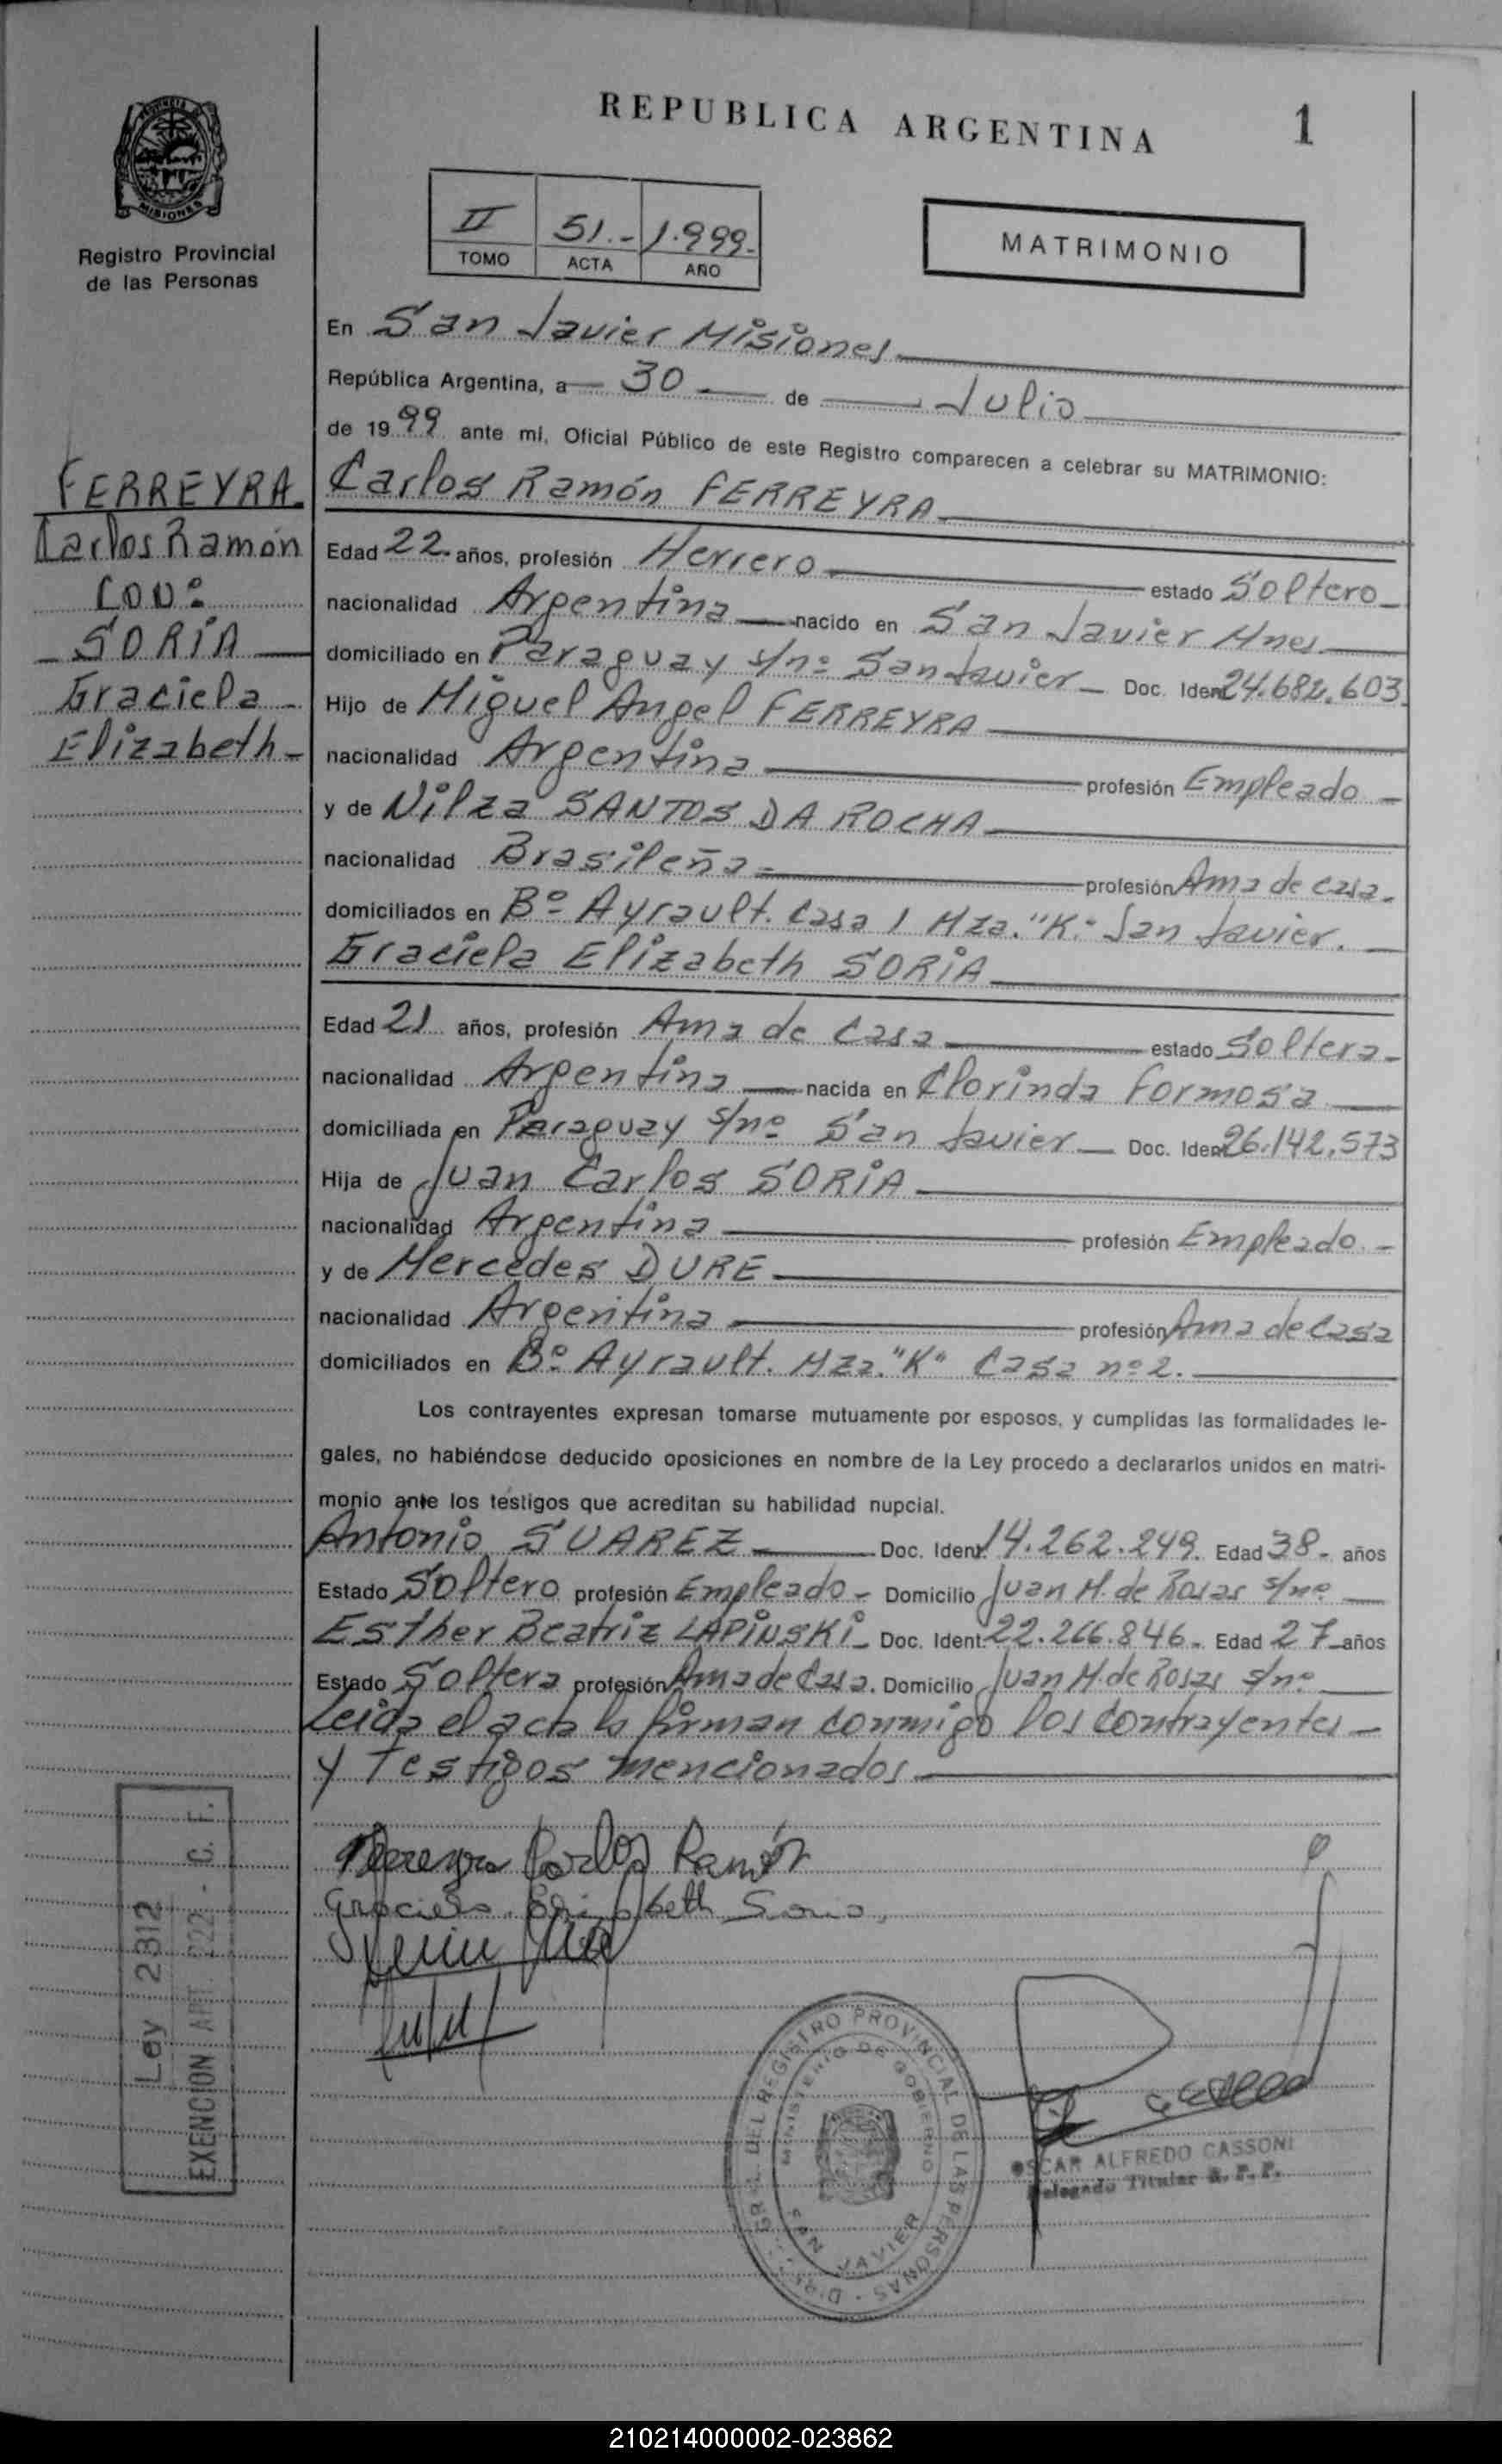 REPUBLICA ARGENTINA
1
PROVINCIA
MISIONES
Registro Provincial
de las Personas
II 51.- 1.999.-
TOMO ACTA AÑO
MATRIMONIO
En San Javier Misiones
República Argentina, a 30 de Julio
de 1999 ante mí, Oficial Público de este Registro comparecen a celebrar su MATRIMONIO:
FERREYRA
Carlos Ramón
con:
SORIA
Graciela
Elizabeth
Carlos Ramón FERREYRA
Edad 22 años, profesión Herrero estado Soltero
nacionalidad Argentina nacido en San Javier Mnes
domiciliado en Paraguay s/nº San Javier Doc. Ident 24.682.603
Hijo de Miguel Angel FERREYRA
nacionalidad Argentina profesión Empleado
y de Nilza SANTOS DA ROCHA
nacionalidad Brasileña profesión Ama de casa
domiciliados en Bº Ayrault. Casa 1 Mza. "K" San Javier.
Graciela Elizabeth SORIA
Edad 21 años, profesión Ama de Casa estado Soltera
nacionalidad Argentina nacida en Clorinda Formosa
domiciliada en Paraguay s/nº San Javier Doc. Ident 26.142.573
Hija de Juan Carlos SORIA
nacionalidad Argentina profesión Empleado
y de Mercedes DURE
nacionalidad Argentina profesión Ama de Casa
domiciliados en Bº Ayrault. Mza. "K" Casa nº 2.
Los contrayentes expresan tomarse mutuamente por esposos, y cumplidas las formalidades le-
gales, no habiéndose deducido oposiciones en nombre de la Ley procedo a declararlos unidos en matri-
monio ante los testigos que acreditan su habilidad nupcial.
Antonio SUAREZ Doc. Ident. 14.262.249. Edad 38 años
Estado Soltero profesión Empleado Domicilio Juan M. de Rosas s/nº
Esther Beatriz LAPINSKI Doc. Ident. 22.266.846. Edad 27 años
Estado Soltera profesión Ama de Casa. Domicilio Juan M. de Rosas s/nº
Leida el acta la firman conmigo los contrayentes
y Testigos mencionados
Ferreyra Carlos Ramón
Graciela Elizabeth Soria
Ley 2312
EXENCION ART. 222 - C. F.
REGISTRO PROVINCIAL DE LAS PERSONAS
MINISTERIO DE GOBIERNO
SAN JAVIER
OSCAR ALFREDO CASSONI
Delegado Titular R. P. P.
210214000002-023862